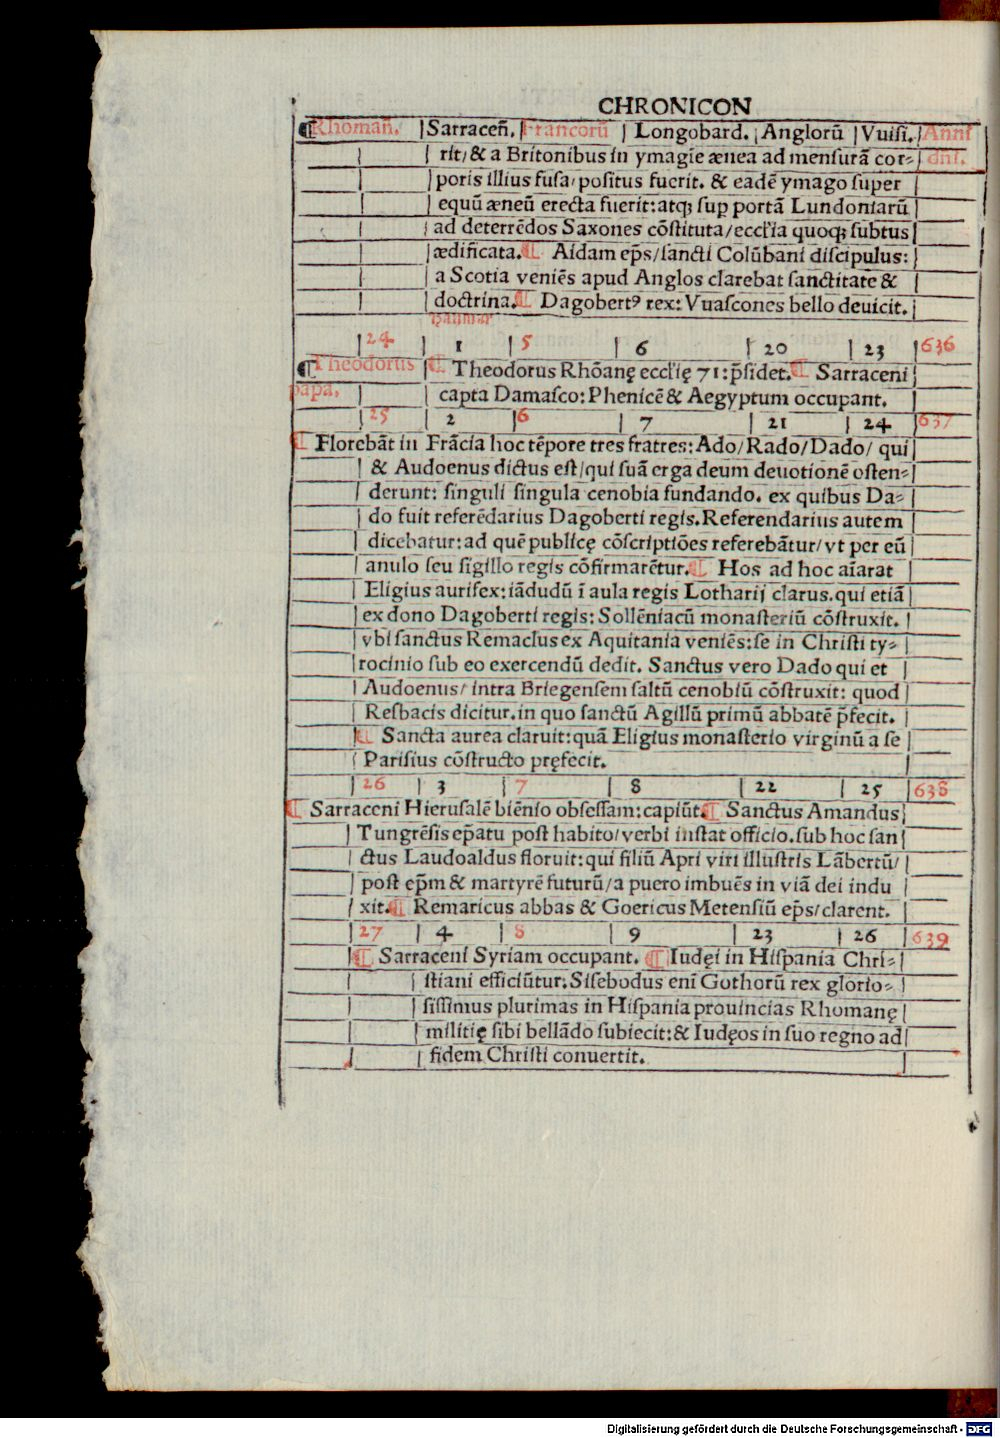 CHRONICON
Rhomañ. Sarraceñ. Francorū Longobard. Anglorū Vuiſi. Anni
rit/ & a Britonibus in ymagīe ænea ad menſurā cor⸗ dñi.
poris illius fuſa/ poſitus fuerit. & eadē ymago ſuper
equū æneū erecta fuerit: atqꝫ ſuꝑ portā Lundoniarū
ad deterrēdos Saxones cōſtituta/ eccl'ia quoqꝫ ſubtus
ædificata. ¶ Aidam ep̄s/ ſancti Colūbani diſcipulus:
a Scotia veniēs apud Anglos clarebat ſanctitate &
doctrina. ¶ Dagobertꝰ rex: Vuaſcones bello deuicit.
Haumar
24 1 5 6 20 23 636
¶ Theodorus ¶ Theodorus Rhōanę eccl'ię 71: p̄ſidet. ¶ Sarraceni
papa. capta Damaſco: Phenicē & Aegyptum occupant.
25 2 6 7 21 24 637
¶ Florebāt in Frācia hoc tēpore tres fratres: Ado/ Rado/ Dado/ qui
& Audoenus dictus eſt/ qui ſuā erga deum deuotionē oſten⸗
derunt: ſinguli ſingula cenobia fundando. ex quibus Da⸗
do fuit referēdarius Dagoberti regis. Referendarius autem
dicebatur: ad quē publicę cōſcriptiōes referebātur/ vt per eū
anulo ſeu ſigillo regis cōfirmarētur. ¶ Hos ad hoc aīarat
Eligius aurifex: iādudū ī aula regis Lotharij clarus. qui etiā
ex dono Dagoberti regis: Sollēniacū monaſteriū cōſtruxit.
vbi ſanctus Remaclus ex Aquitania veniēs: ſe in Chriſti ty⸗
rocinio ſub eo exercendū dedit. Sanctus vero Dado qui et
Audoenus/ intra Briegenſem ſaltū cenobiū cōſtruxit: quod
Reſbacis dicitur. in quo ſanctū Agillū primū abbatē p̄fecit.
¶ Sancta aurea claruit: quā Eligius monaſterio virginū a ſe
Pariſius cōſtructo pręfecit.
26 3 7 8 22 25 638
¶ Sarraceni Hieruſalē biēnio obſeſſam: capiūt. ¶ Sanctus Amandus
Tungrēſis ep̄atu poſt habito/ verbi inſtat officio. ſub hoc ſan
ctus Laudoaldus floruit: qui filiū Apri viri illuſtris Lābertū/
poſt ep̄m & martyrē futurū/ a puero imbuēs in viā dei indu
xit. ¶ Remaricus abbas & Goericus Metenſiū ep̄s/ clarent.
27 4 8 9 23 26 639
¶ Sarraceni Syriam occupant. ¶ Iudęi in Hiſpania Chri⸗
ſtiani efficiūtur. Siſebodus eni Gothorū rex glorio⸗
ſiſſimus plurimas in Hiſpania prouincias Rhomanę
militię ſibi bellādo ſubiecit: & Iudęos in ſuo regno ad
fidem Chriſti conuertit.
Digitalisierung gefördert durch die Deutsche Forschungsgemeinschaft - DFG